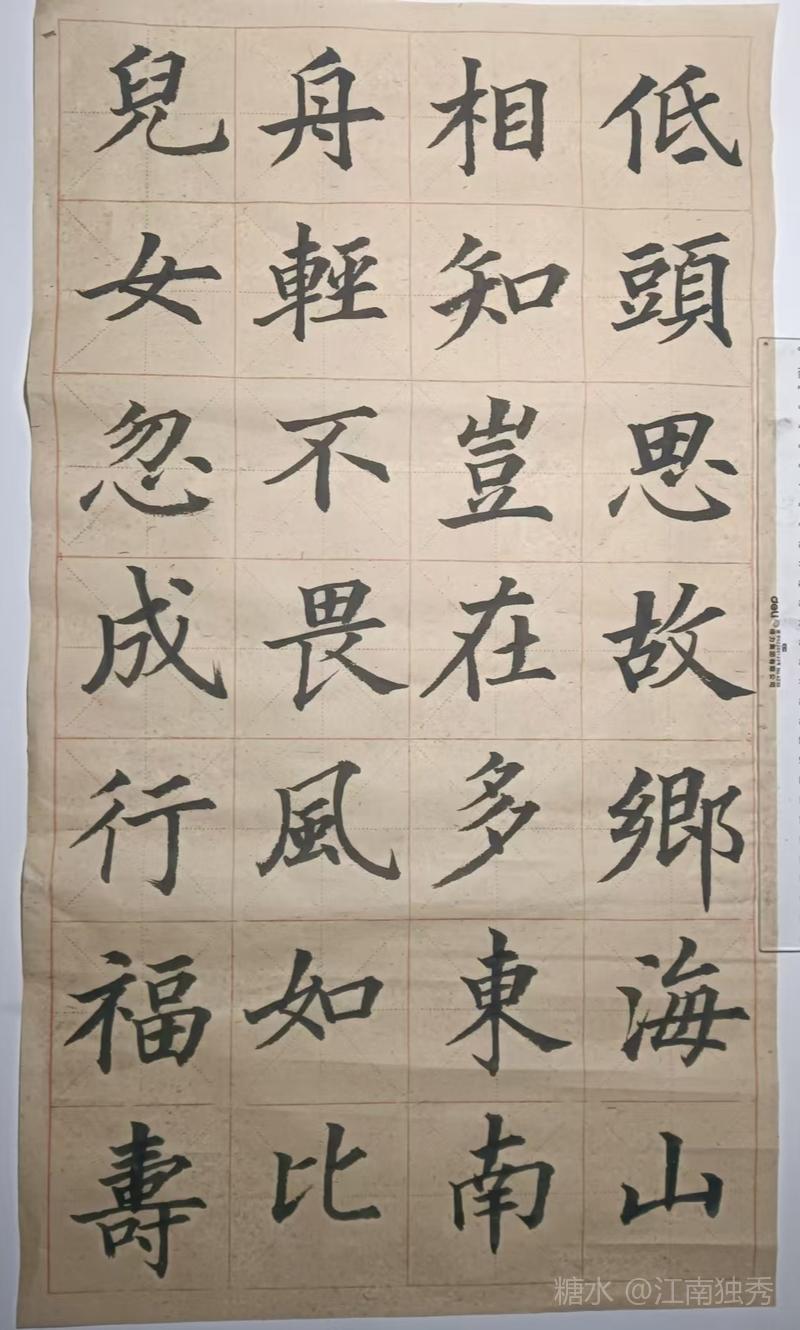 低頭思故鄉海山
相知豈在多東南
舟輕不畏風如比
兒女忽成行福壽
deli
糖水 @江南独秀